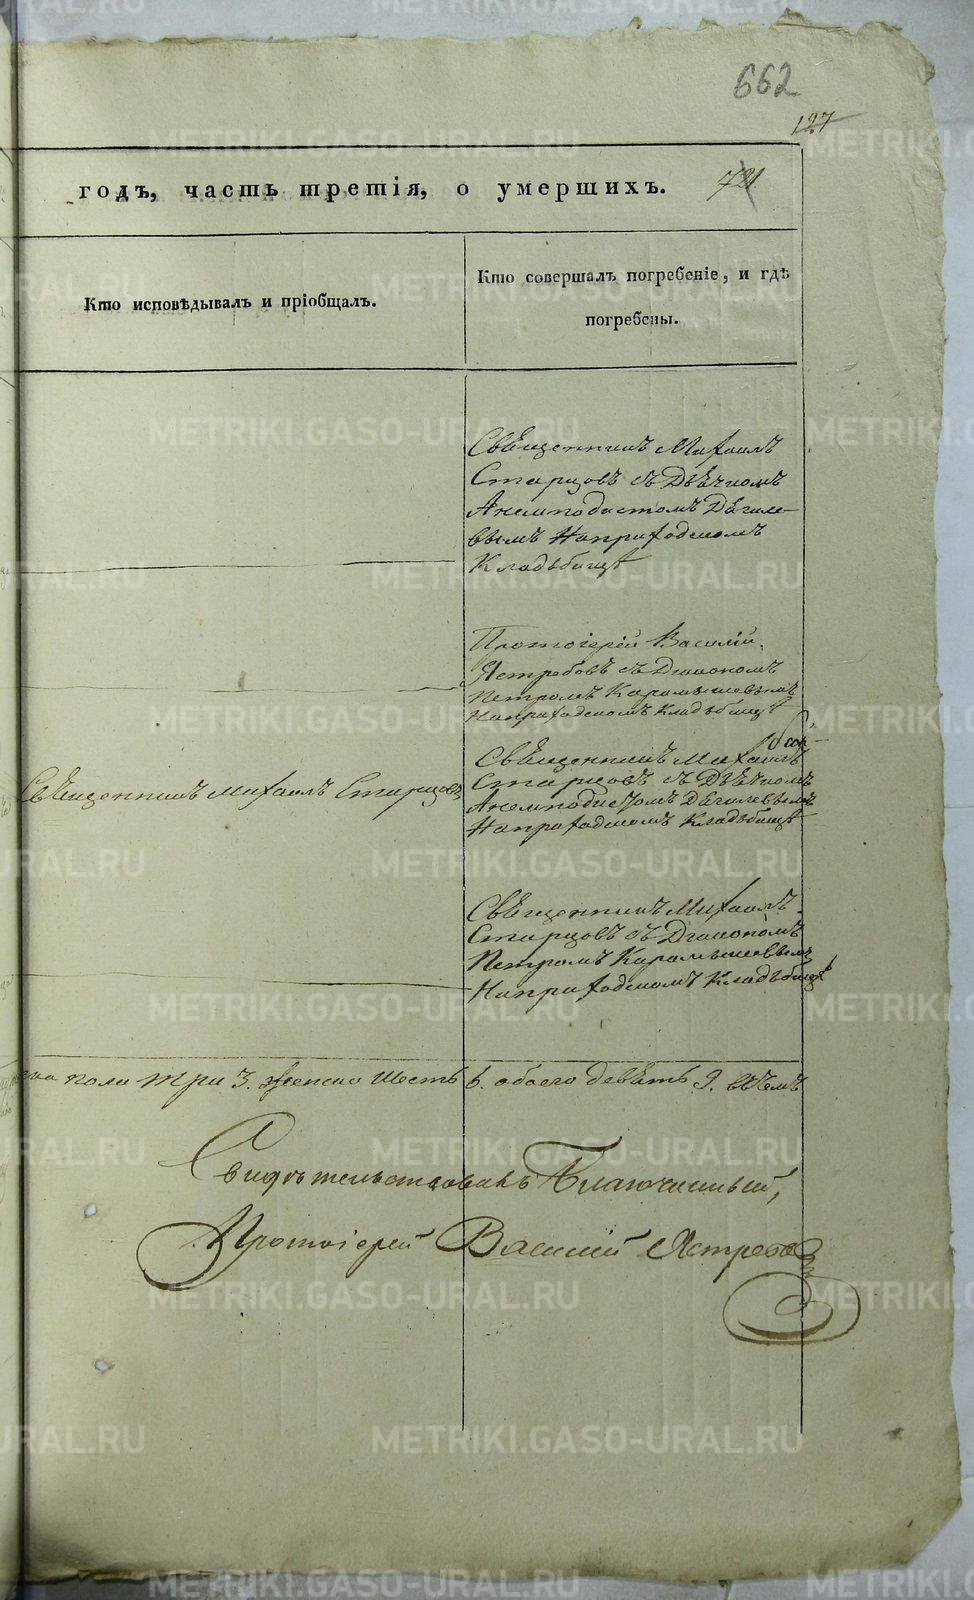 662
127
годъ, часть третія, о умершихъ. 721
Кто исповѣдывалъ и пріобщалъ.
Кто совершалъ погребеніе, и гдѣ
погребены.
Священникъ Михаилъ
Старцовъ съ Дьячкомъ
Анемподистомъ Дѣгиле-
вымъ Наприходскомъ
Кладьбищѣ
Протоіерей Василій
Ястребовъ съ Діакономъ
Петромъ Карамышевымъ
Наприходскомъ Кладьбищѣ
Священникъ Михаилъ
Старцовъ съ Дьячкомъ
Анемподистомъ Дѣгилевымъ
Наприходскомъ Кладьбищѣ
Священникъ Михаилъ Старцовъ
Священникъ Михаилъ
Старцовъ съ Діакономъ
Петромъ Карамышевымъ
Наприходскомъ Кладьбищѣ
пола три 3. женска шесть 6. обоего девять 9. всѣмъ
Свидѣтельствовалъ Благочинный,
Протоіерей Василій Ястребовъ
METRIKI.GASO-URAL.RU